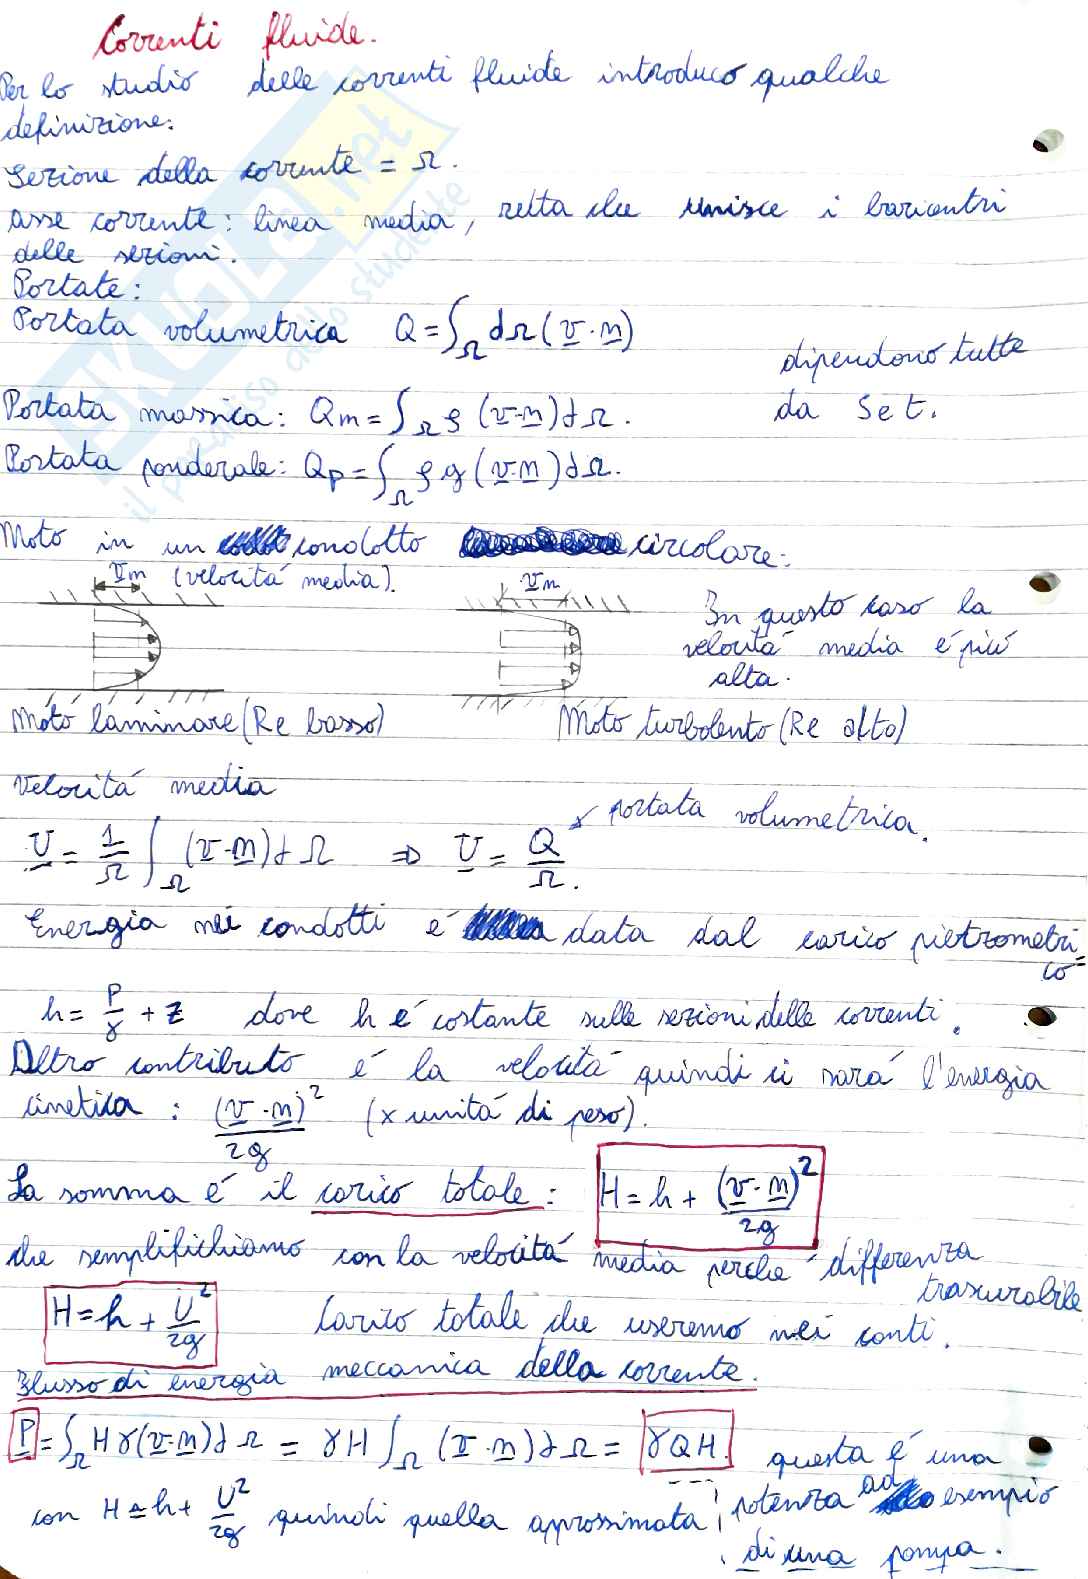 Correnti fluide.
Per lo studio delle correnti fluide introduco qualche
definizione:
Sezione della corrente = Ω.
asse corrente: linea media, retta che unisce i baricentri
delle sezioni.
Portate:
Portata volumetrica Q = ∫_Ω dΩ (v·n)
dipendono tutte
da S e t.
Portata massica: Qm = ∫_Ω ρ (v·n) dΩ.
Portata ponderale: Qp = ∫_Ω ρ g (v·n) dΩ.
Moto in un condotto circolare:
Vm (velocità media).
Vm
In questo caso la
velocità media è più
alta.
Moto laminare (Re basso)
Moto turbolento (Re alto)
Velocità media
portata volumetrica.
U = 1/Ω ∫_Ω (v·n) dΩ ⇒ U = Q/Ω.
Energia nei condotti é data dal carico pietrometri=
co
h = P/γ + z dove h é costante sulle sezioni delle correnti.
Altro contributo é la velocità quindi ci sarà l'energia
cinetica: (v·n)²/2g (x unità di peso).
La somma é il carico totale: H = h + (v·n)²/2g
che semplifichiamo con la velocità media perché differenza
trascurabile
H = h + U²/2g Carico totale che useremo nei conti.
Flusso di energia meccanica della corrente.
P = ∫_Ω H γ (v·n) dΩ = γH ∫_Ω (v·n) dΩ = γQH. questa é una
con H ≃ h + U²/2g quindi quella approssimata
potenza ad esempio
di una pompa.
SKUOLA.net
il paradiso dello studente